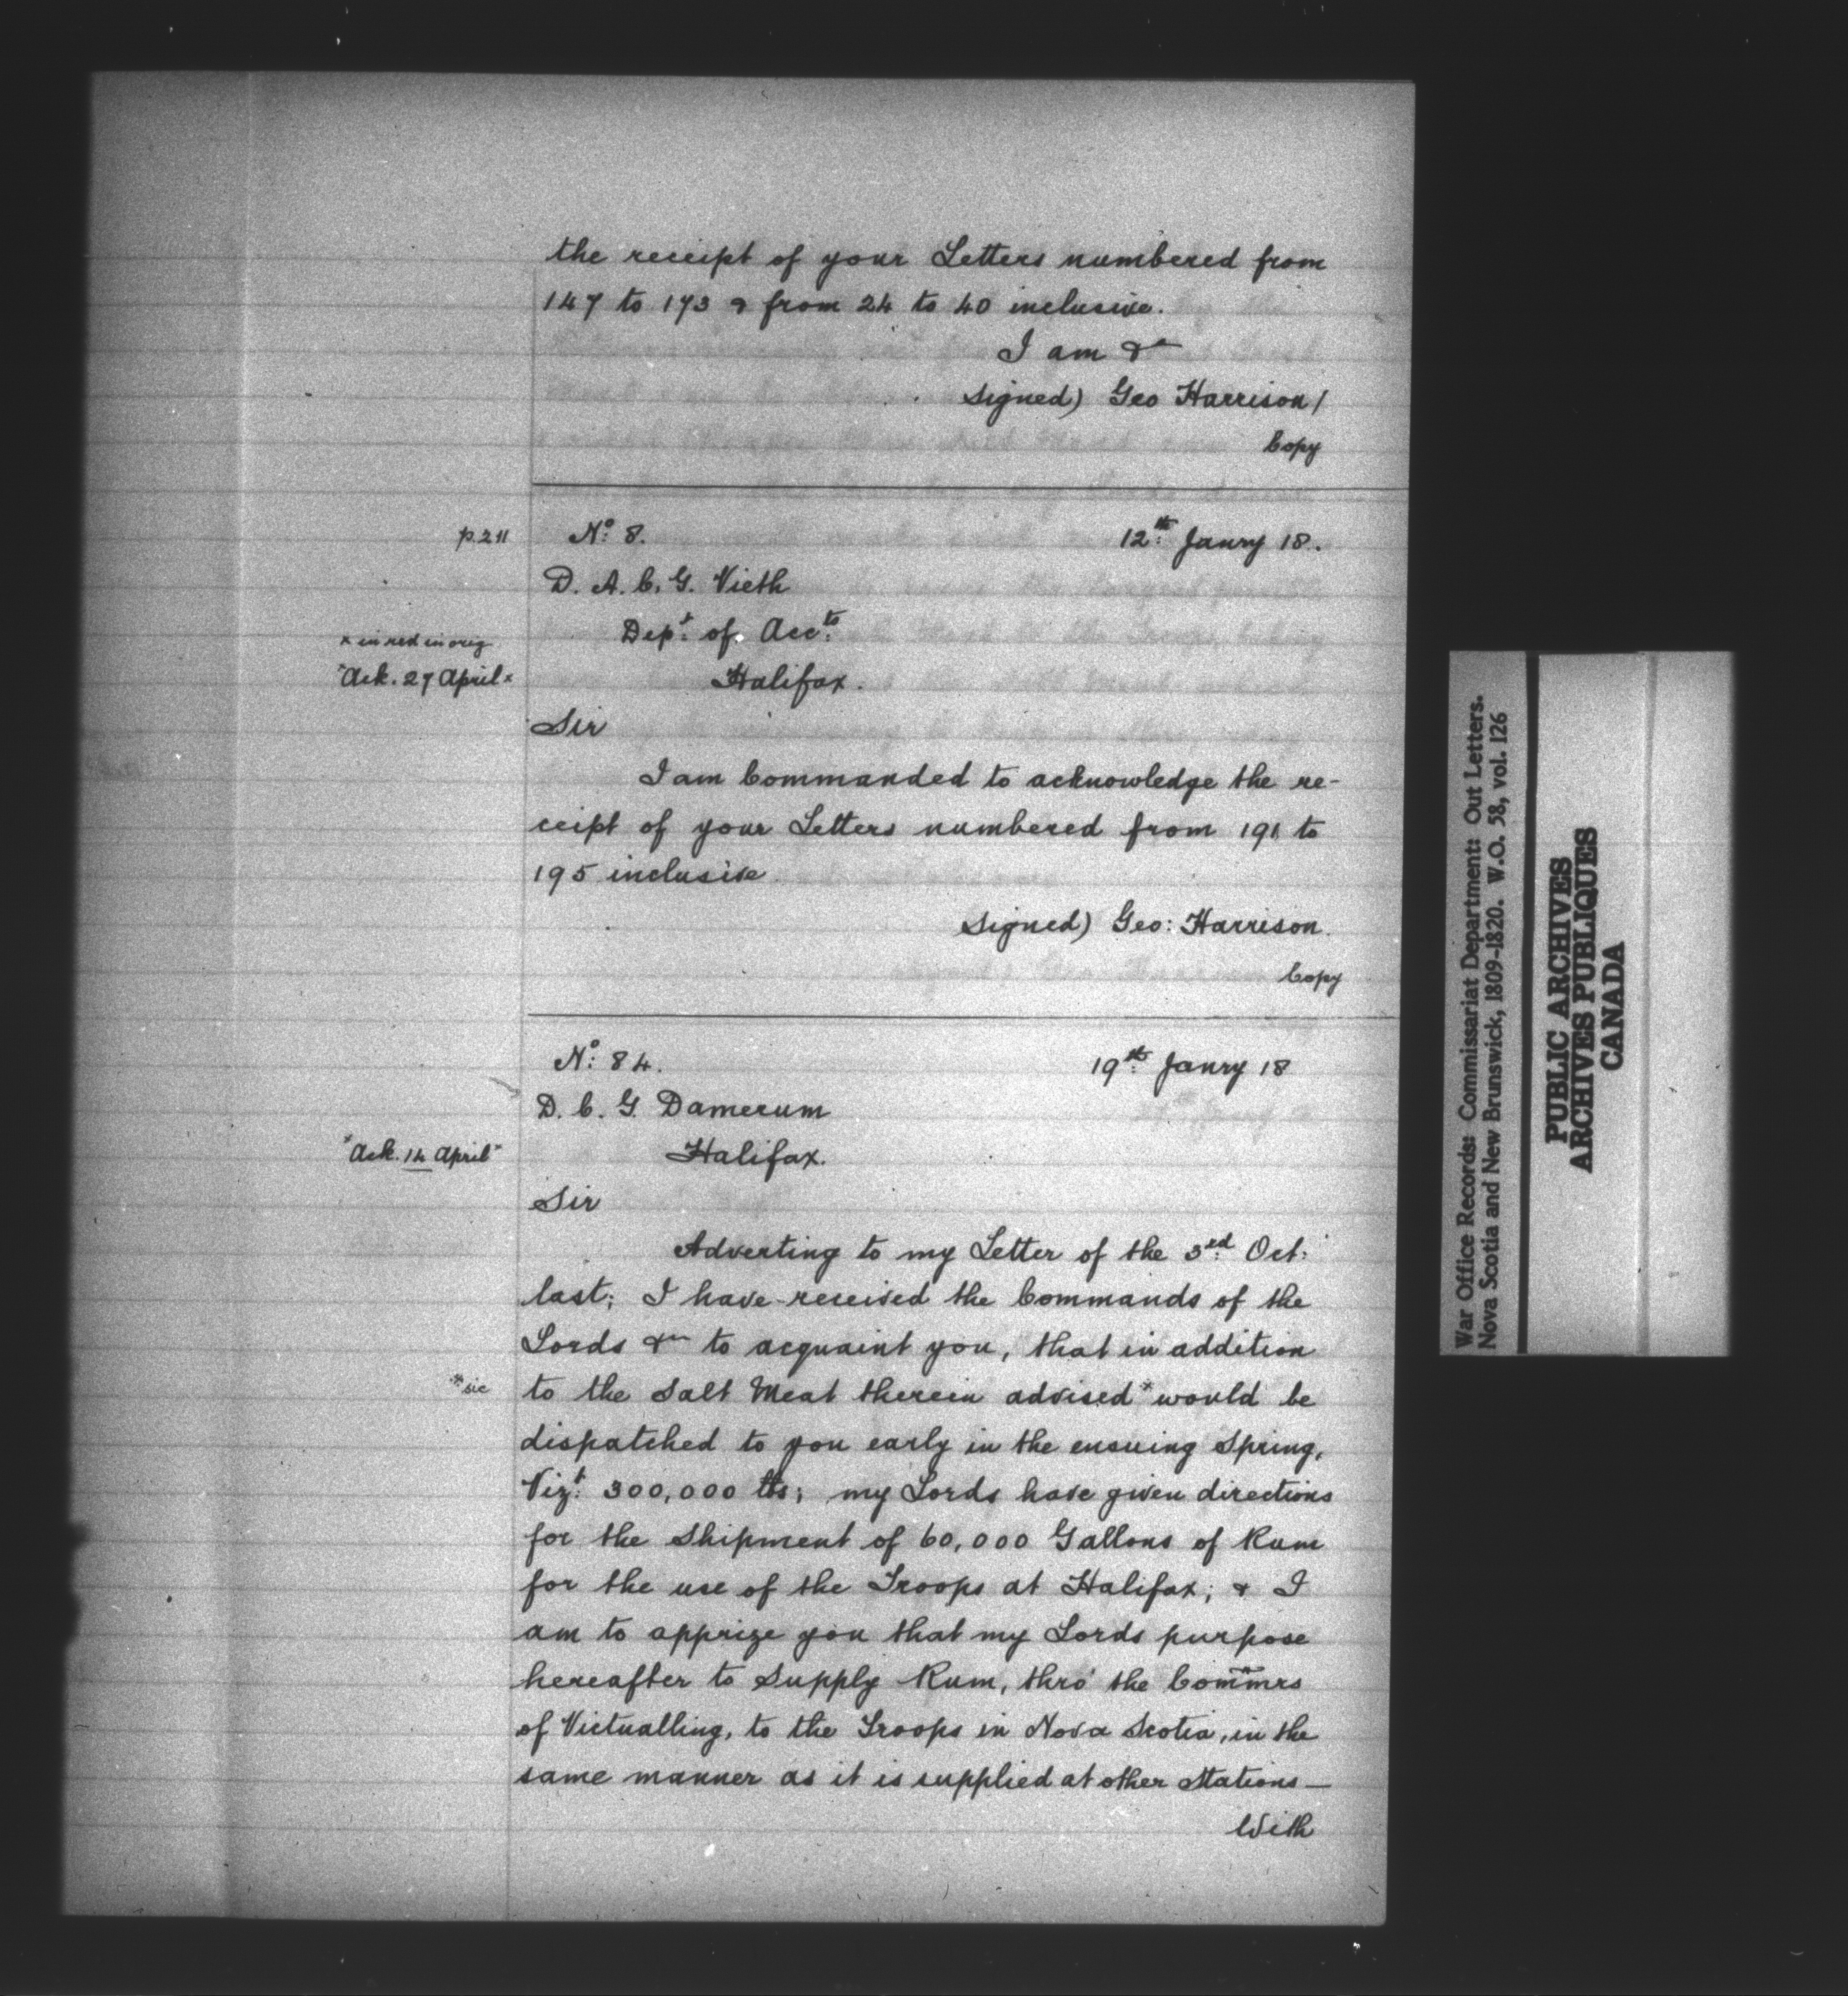 the receipt of your Letters numbered from
147 to 173 & from 24 to 40 inclusive.
I am &c
Signed) Geo Harrison/
Copy
p. 211
No: 8.
12th: Janry 18.
D. A. C. G. Vieth
Dept: of Accts:
Halifax.
x in red in orig
"Ack. 27 April x
Sir
I am Commanded to acknowledge the re-
ceipt of your Letters numbered from 191 to
195 inclusive
Signed) Geo: Harrison.
Copy
No: 84.
19th: Janry 18
D. C. G. Damerum
Halifax.
"Ack. 14 April"
Sir
Adverting to my Letter of the 3rd: Oct:
last; I have received the Commands of the
Lords &c to acquaint you, that in addition
to the Salt Meat therein advised * would be
* sic
dispatched to you early in the ensuing Spring,
Vizt: 300,000 lbs; my Lords have given directions
for the Shipment of 60,000 Gallons of Rum
for the use of the Troops at Halifax; & I
am to apprize you that my Lords purpose
hereafter to Supply Rum, thro' the Commrs
of Victualling, to the Troops in Nova Scotia, in the
same manner as it is supplied at other Stations —
With
War Office Records: Commissariat Department: Out Letters.
Nova Scotia and New Brunswick, 1809-1820. W.O. 58, vol. 126
PUBLIC ARCHIVES
ARCHIVES PUBLIQUES
CANADA